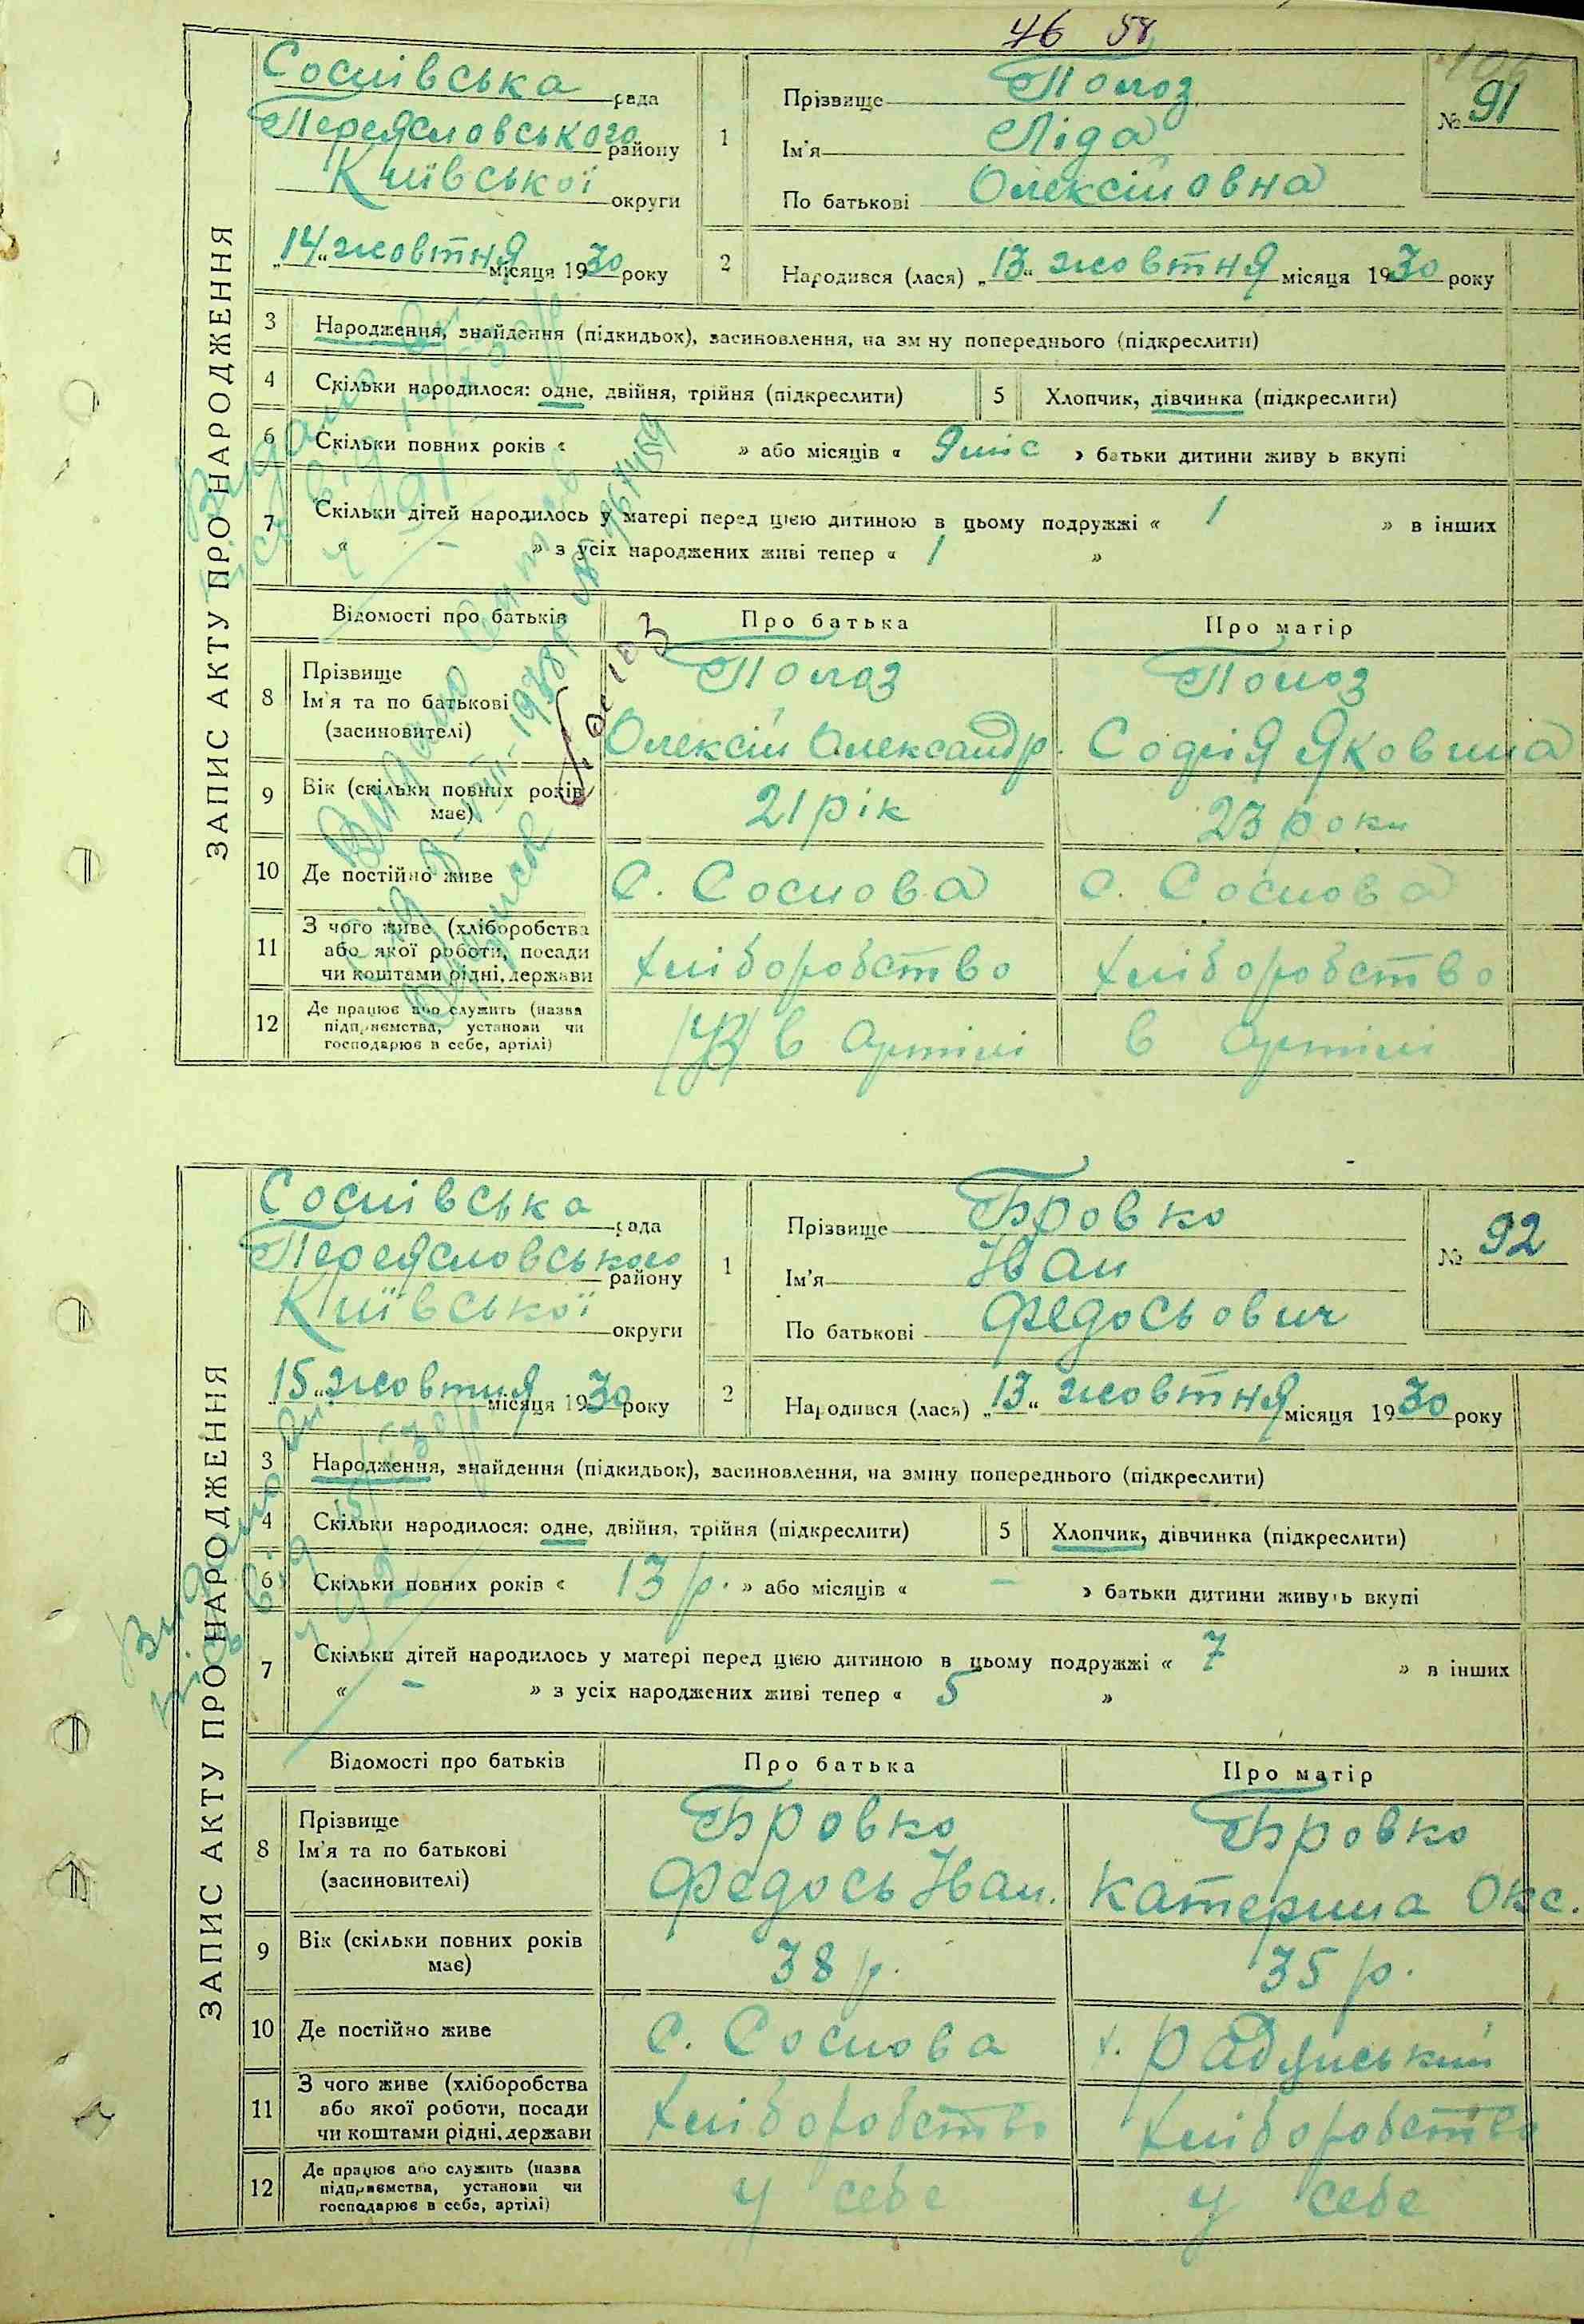 46 58
ЗАПИС АКТУ ПРО НАРОДЖЕННЯ
Соснівська рада
Переясловського району
Київської округи
„14“ жовтня місяця 1930 року
1
Прізвище Полоз
Ім'я Ліда
По батькові Олексійовна
№ 91
2
Народився (лася) „13“ жовтня місяця 1930 року
3 Народження, знайдення (підкидьок), засиновлення, на зм ну попереднього (підкреслити)
4 Скільки народилося: одне, двійня, трійня (підкреслити)
5 Хлопчик, дівчинка (підкреслити)
6 Скільки повних років « » або місяців « 9 міс » батьки дитини живу ь вкупі
7 Скільки дітей народилось у матері перед цією дитиною в цьому подружжі « 1 » в інших
« – » з усіх народжених живі тепер « 1 »
Відомості про батьків Про батька Про матір
8 Прізвище
Ім'я та по батькові
(засиновителі)
Полоз Полоз
Олексій Олександр. Софія Яковина
9 Вік (скільки повних років має) 21 рік 23 роки
10 Де постійно живе С. Соснова С. Соснова
11 З чого живе (хліборобства
або якої роботи, посади
чи коштами рідні, держави
хліборобство хліборобство
12 Де працює або служить (назва
підприємства, установи чи
господарює в себе, артілі)
в артілі в артілі
ЗАПИС АКТУ ПРО НАРОДЖЕННЯ
Соснівська рада
Переясловського району
Київської округи
„15“ жовтня місяця 1930 року
1
Прізвище Бровко
Ім'я Іван
По батькові Федосьович
№ 92
2
Народився (лася) „13“ жовтня місяця 1930 року
3 Народження, знайдення (підкидьок), засиновлення, на зміну попереднього (підкреслити)
4 Скільки народилося: одне, двійня, трійня (підкреслити)
5 Хлопчик, дівчинка (підкреслити)
6 Скільки повних років « 13 р. » або місяців « – » батьки дитини живуть вкупі
7 Скільки дітей народилось у матері перед цією дитиною в цьому подружжі « 7 » в інших
« – » з усіх народжених живі тепер « 5 »
Відомості про батьків Про батька Про матір
8 Прізвище
Ім'я та по батькові
(засиновителі)
Бровко Бровко
Федось Іван. Катерина Окс.
9 Вік (скільки повних років має) 38 р. 35 р.
10 Де постійно живе С. Соснова х. Радуцький
11 З чого живе (хліборобства
або якої роботи, посади
чи коштами рідні, держави
хліборобство хліборобство
12 Де працює або служить (назва
підприємства, установи чи
господарює в себе, артілі)
у себе у себе